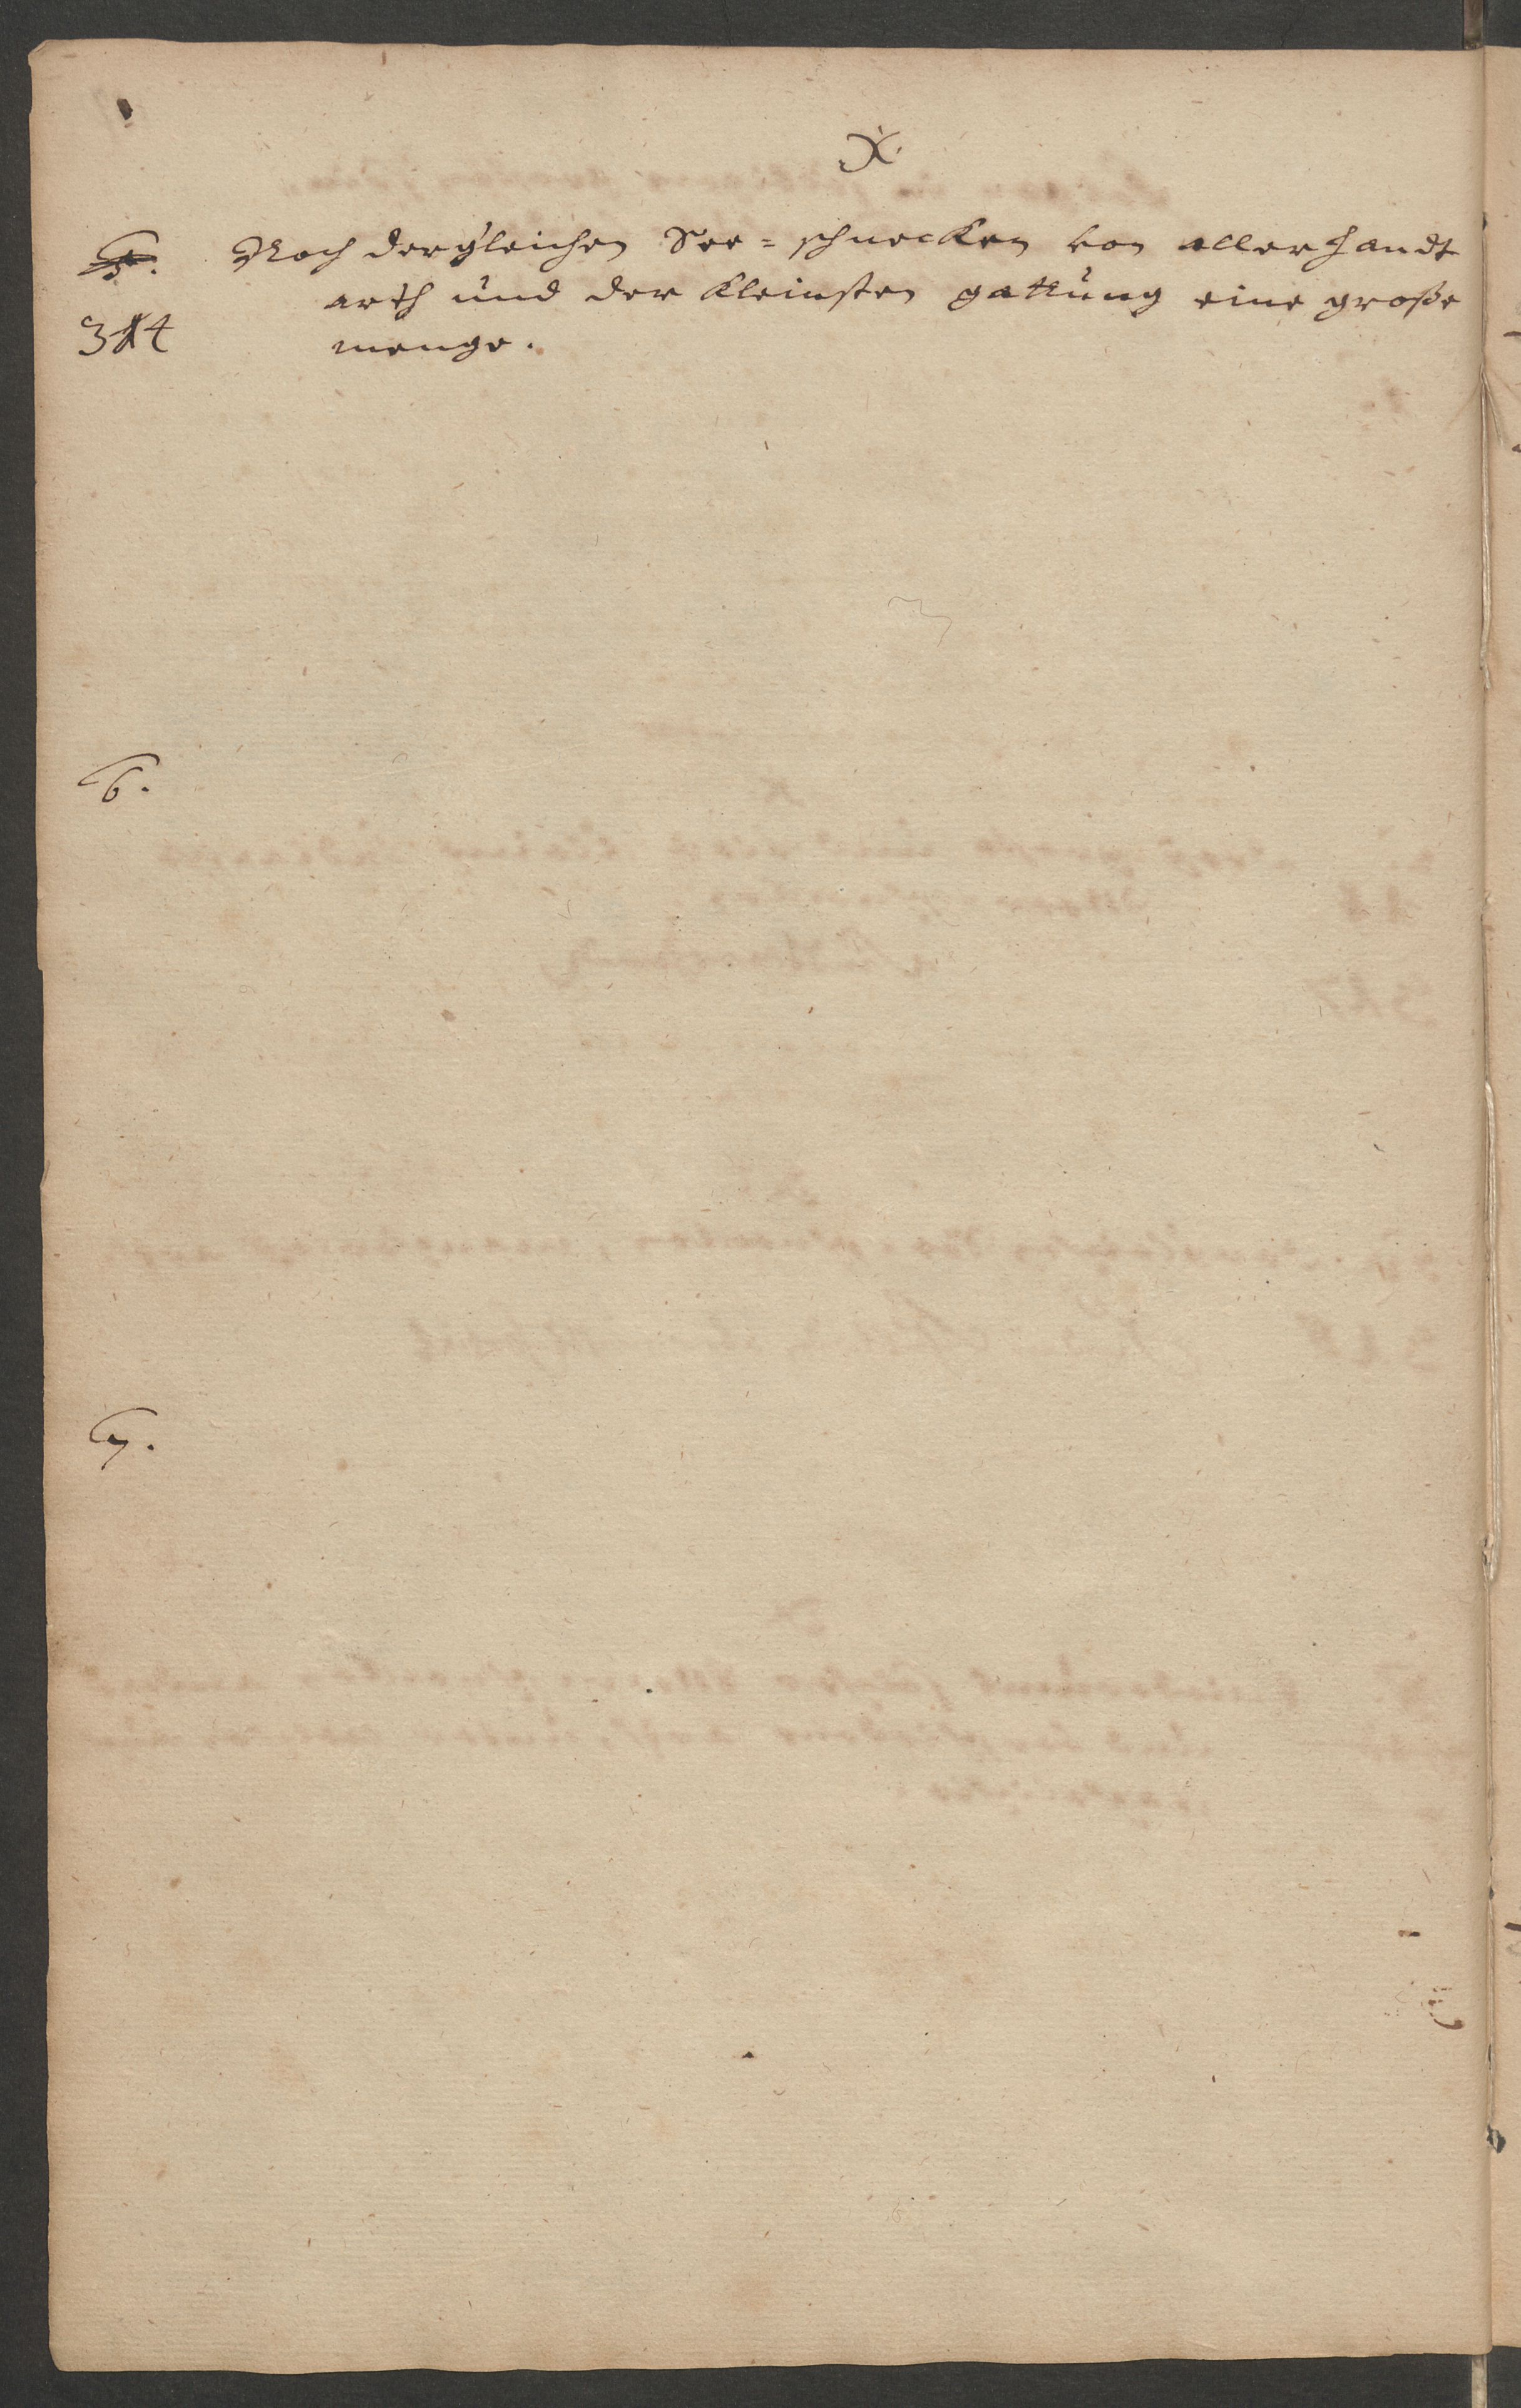 X.
5. Noch dergleichen See=schnecken von allerhandt
arth und der kleinsten gattung eine große
314 menge.
6.
7.